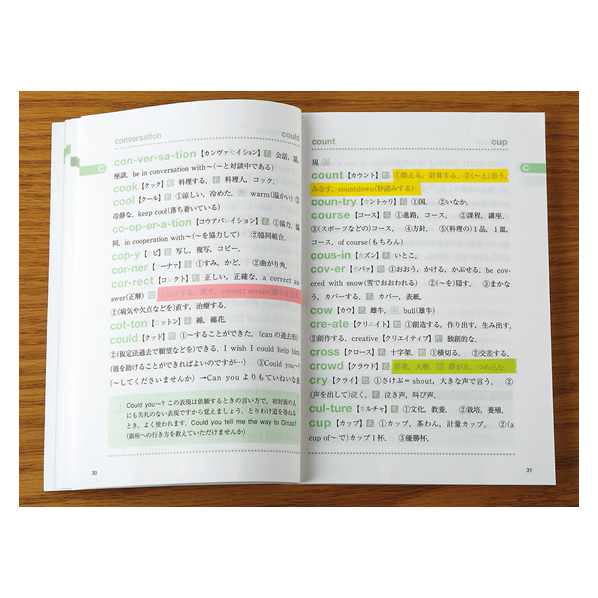 conversation
could
con·ver·sa·tion【カンヴァセイション】会話, 談,
座談, be in conversation with〜(〜と対談中である)
cook【クック】料理する, 料理人, コック,
cool【クール】①涼しい, 冷めた, warm(温かい) ②
冷静な, keep cool(落ち着いている)
co·op·er·a·tion【コウアパレイション】①協力, 協
同, in cooperation with〜(〜を協力して) ②協同組合,
cop·y【 ピ】写し, 複写, コピー,
cor·ner【 ーナァ】①すみ, かど, ②曲がり角,
cor·rect【コ クト】正しい, 正確な, a correct an-
swer(正解) correct errors
②(病気や欠点などを)直す, 治療する,
cot·ton【 ットン】綿, 綿花,
could【クッド】①〜することができた, (canの過去形)
②(仮定法過去で願望などを)できる, I wish I could help him,
(彼を助けることができればよいのですが…) ③Could you〜?
(〜してくださいませんか) →Can you よりもていねいな表
Could you〜? この表現は依頼するときの言い方で, 初対面の人
にも失礼のない表現ですから覚えましょう, とりわけ道を尋ねる
とき, よく使われます, Could you tell me the way to Ginza?
(銀座への行き方を教えていただけませんか)
30
C
count
cup
現
count【カウント】①数える, 計算する, ②(〜と)思う,
みなす, countdown(秒読みする)
coun·try【カントゥリ】①国, ②いなか,
course【コース】①進路, コース, ②課程, 講座,
③(スポーツなどの)コース, ④方針, ⑤(料理の)1品, 1皿,
コース, of course(もちろん)
cous·in【カズン】いとこ,
cov·er【カバァ】①おおう, かける, かぶせる, be cov-
ered with snow(雪でおおわれる) ②(〜を)隠す, ③まかな
う, カバーする, カバー, 表紙,
cow【カウ】雌牛, bull(雄牛)
cre·ate【クリエイト】①創造する, 作り出す, 生み出す,
②創作する, creative【クリエイティブ】独創的な,
cross【クロース】十字架, ①横切る, ②交差する,
crowd【クラウド】群衆, 大勢, 群がる, つめ込む,
cry【クライ】①さけぶ=shout, 大きな声で言う, ②
(声を出して)泣く, 泣き声, 叫び声,
cul·ture【カルチャ】①文化, 教養, ②栽培, 養殖,
cup【カップ】①カップ, 茶わん, 計量カップ, ②(a
cup of〜で)カップ1杯, ③優勝杯,
31
C